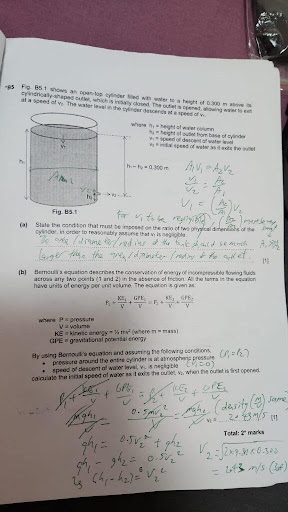 *B5 Fig. B5.1 shows an open-top cylinder filled with water to a height of 0.300 m above its
cylindrically-shaped outlet, which is initially closed. The outlet is opened, allowing water to exit
at a speed of v₂. The water level in the cylinder descends at a speed of v₁.
where h₁ = height of water column
h₂ = height of outlet from base of cylinder
v₁ = speed of descent of water level
v₂ = initial speed of water as it exits the outlet
h₁ – h₂ = 0.300 m
A₁V₁ = A₂V₂
V₁ = (A₂/A₁) V₂
Fig. B5.1
for V₁ to be negligible
(a) State the condition that must be imposed on the ratio of two physical dimensions of the
cylinder, in order to reasonably assume that v₁ is negligible.
The area / diameter / radius of the tank should be much
larger than the area / diameter / radius of the outlet. [1]
(b) Bernoulli's equation describes the conservation of energy of incompressible flowing fluids
across any two points (1 and 2) in the absence of friction. All the terms in the equation
have units of energy per unit volume. The equation is given as:
P₁ + KE₁/V + GPE₁/V = P₂ + KE₂/V + GPE₂/V
where P = pressure
V = volume
KE = kinetic energy = ½ mv² (where m = mass)
GPE = gravitational potential energy
By using Bernoulli's equation and assuming the following conditions,
• pressure around the entire cylinder is at atmospheric pressure (P₁ = P₂)
• speed of descent of water level, v₁, is negligible
calculate the initial speed of water as it exits the outlet, v₂, when the outlet is first opened.
P₁ + KE₁/V + GPE₁/V = P₂ + KE₂/V + GPE₂/V
mgh₁/V = 0.5mv₂²/V + mgh₂/V (density same)
v₂ = 2.43 m/s [1]
Total: 2* marks
gh₁ = 0.5v₂² + gh₂
gh₁ - gh₂ = 0.5v₂²
2g (h₁-h₂) = v₂²
V₂ = √2x9.81x0.300
= 2.43 m/s (3sf)